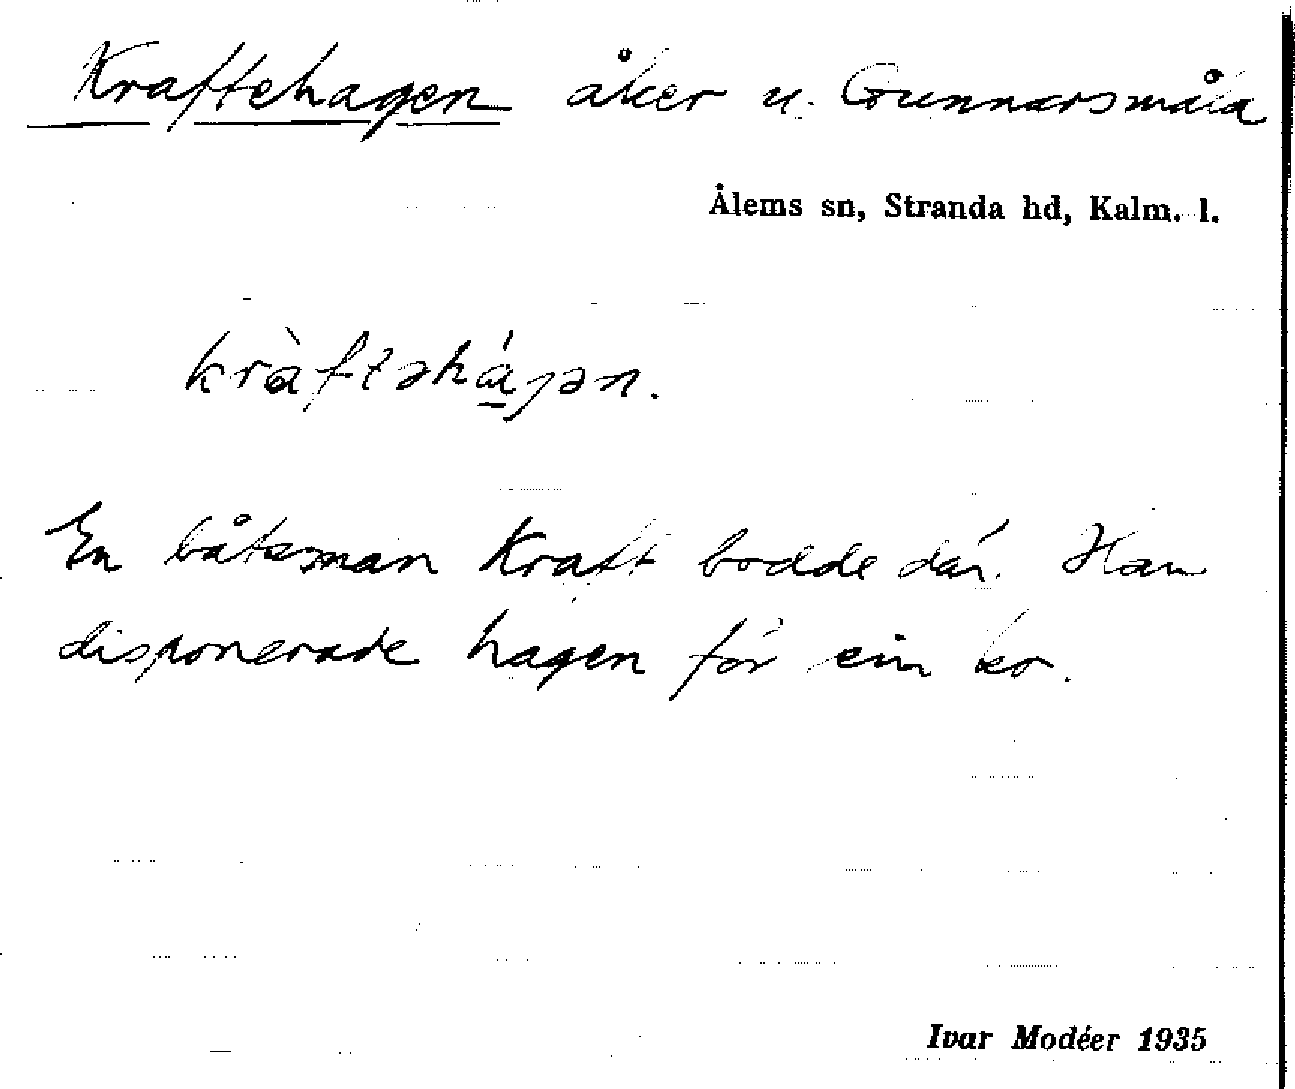 Kraftehagen åker u. Gunnarsmåla
Ålems sn, Stranda hd, Kalm. l.
kràftəháɡən.
En båtsman Kraft bodde där. Han
disponerade hagen för sin ko.
Ivar Modéer 1935